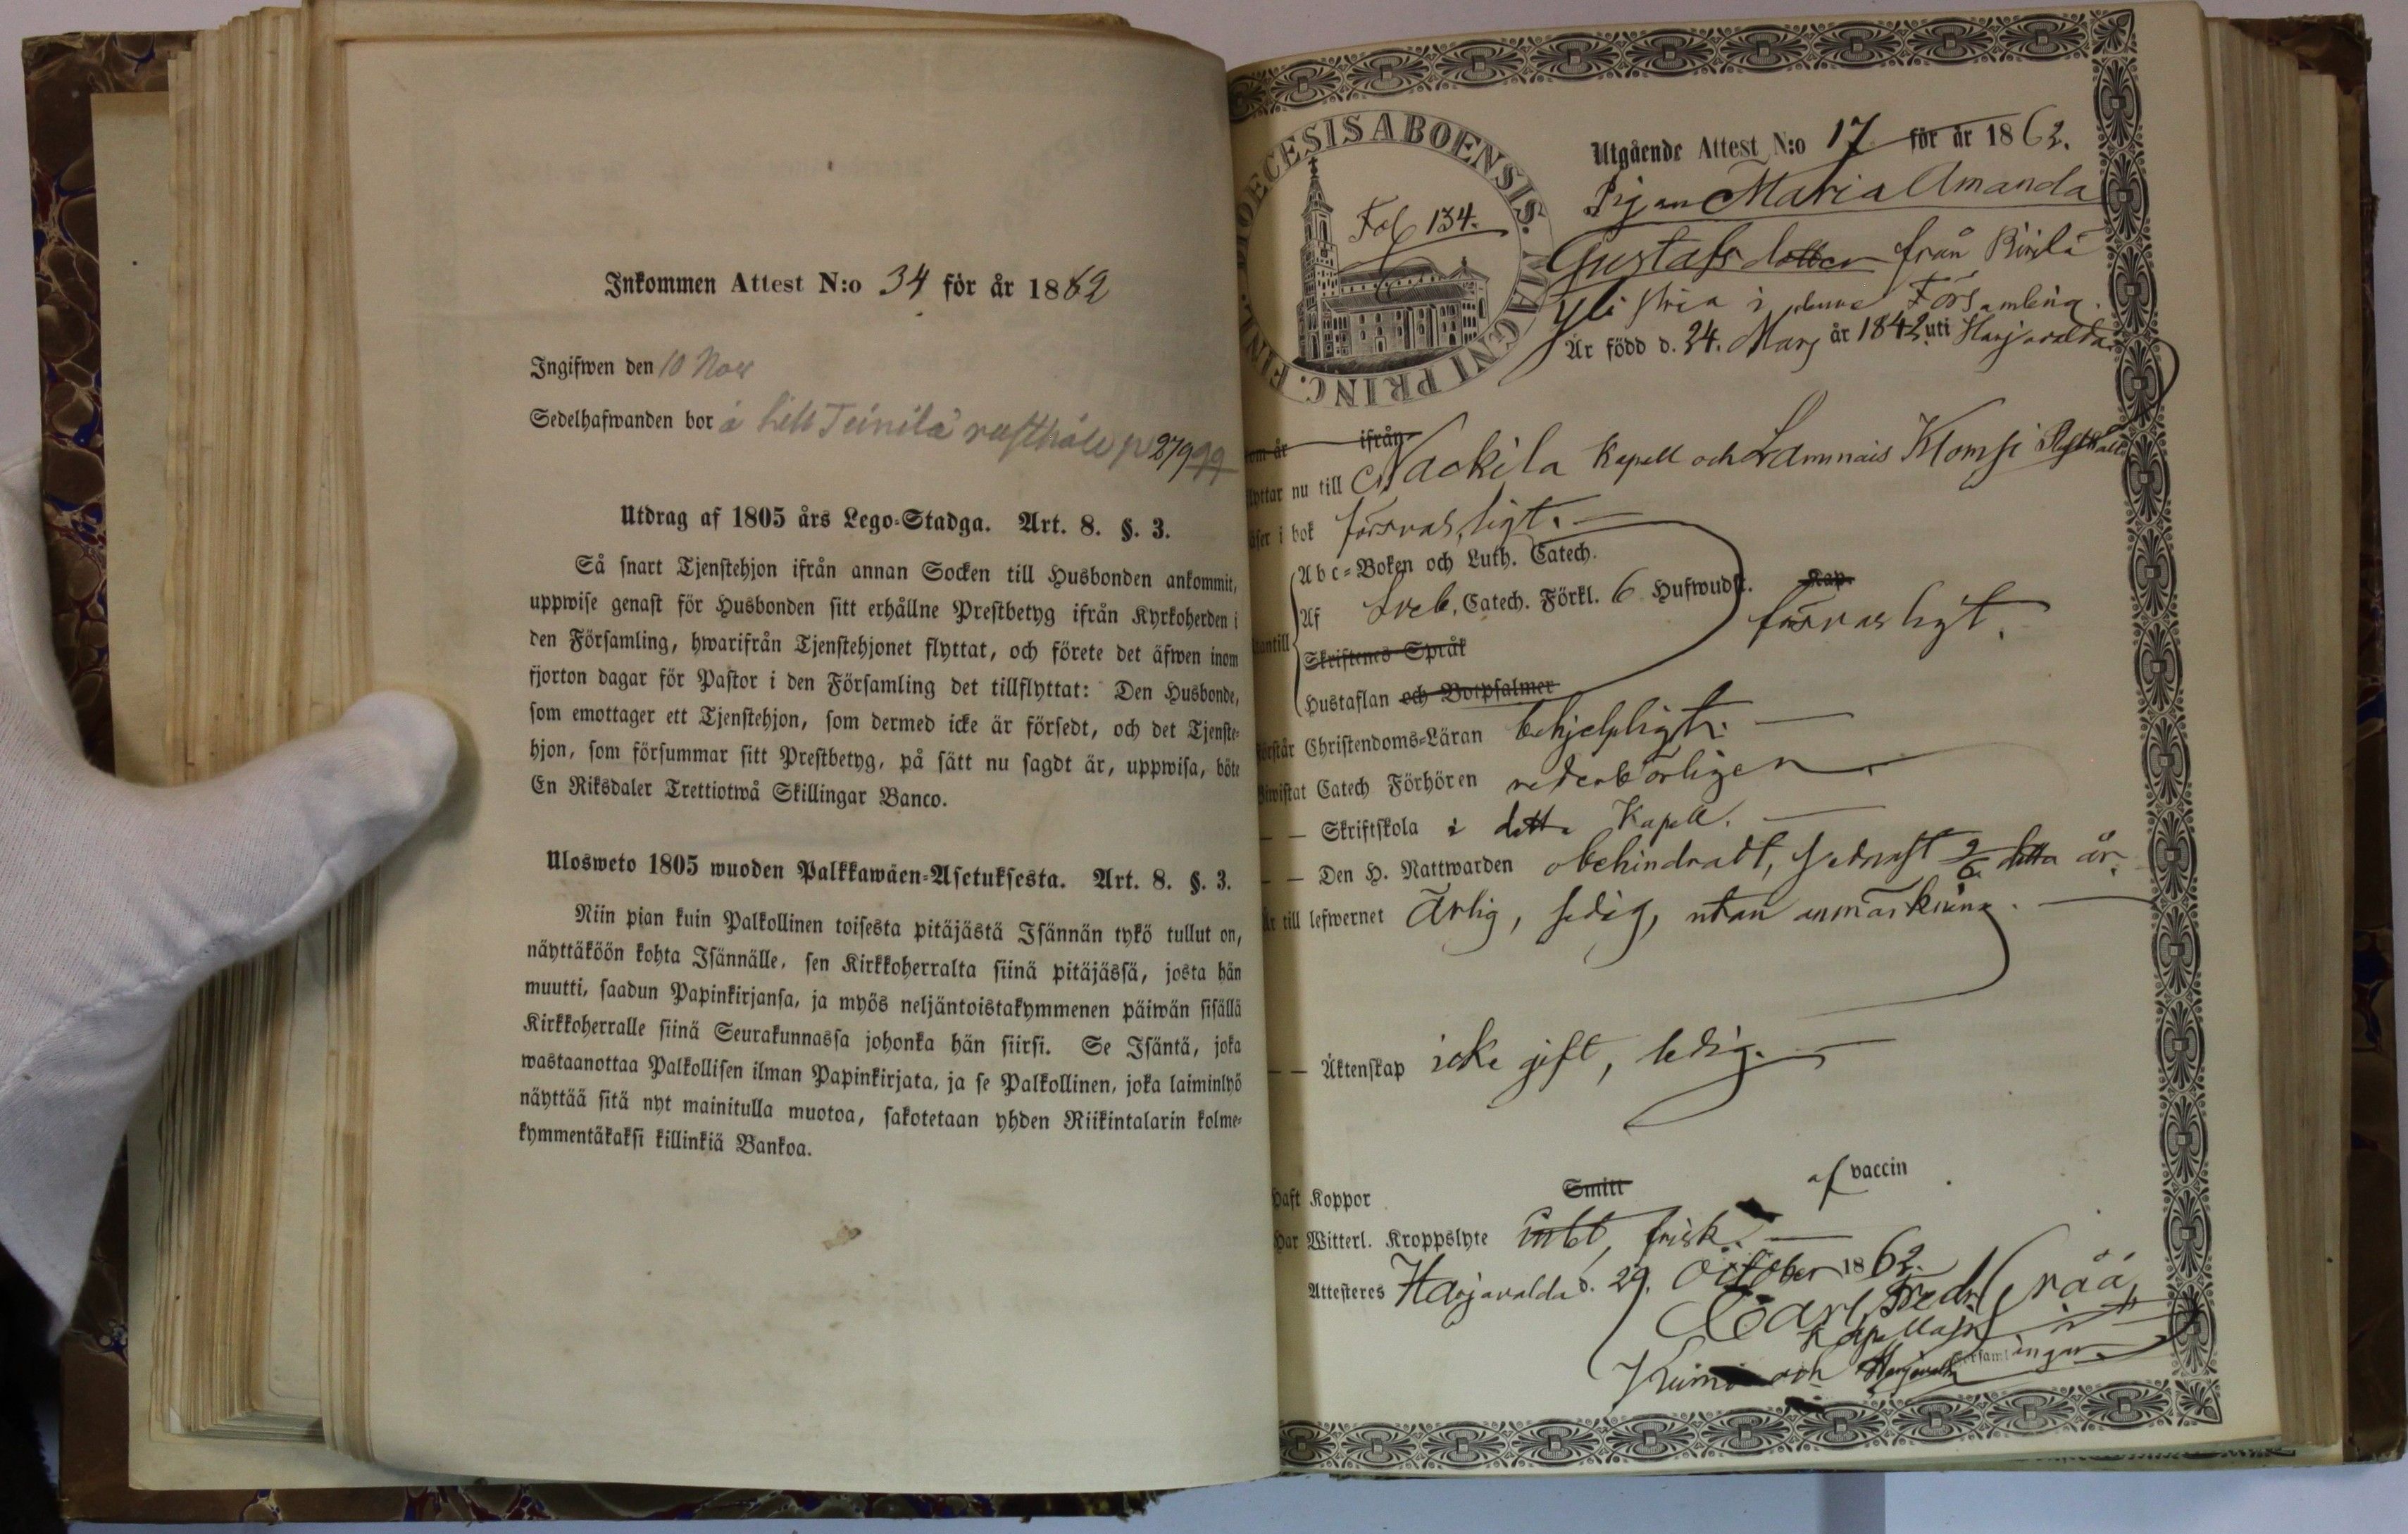 Inkommen Attest N:o 34 för år 1862
Ingifwen den 10 Nov
Sedelhafwanden bor å Lill Teinilä rusthåll p 279
Utdrag af 1805 års Lego-Stadga. Art. 8. §. 3.
Så snart Tjenstehjon ifrån annan Socken till Husbonden ankommit,
uppwise genast för Husbonden sitt erhållne Prestbetyg ifrån Kyrkoherden i
den Församling, hwarifrån Tjenstehjonet flyttat, och förete det äfwen inom
fjorton dagar för Pastor i den Församling det tillflyttat: Den Husbonde,
som emottager ett Tjenstehjon, som dermed icke är försedt, och det Tjenste-
hjon, som försummar sitt Prestbetyg, på sätt nu sagdt är, uppwisa, böte
En Riksdaler Trettiotwå Skillingar Banco.
Ulosweto 1805 wuoden Palkkawäen-Asetuksesta. Art. 8. §. 3.
Niin pian kuin Palkollinen toisesta pitäjästä Isännän tykö tullut on,
näyttäköön kohta Isännälle, sen Kirkkoherralta siinä pitäjässä, josta hän
muutti, saadun Papinkirjansa, ja myös neljäntoistakymmenen päiwän sisällä
Kirkkoherralle siinä Seurakunnassa johonka hän siirsi. Se Isäntä, joka
wastaanottaa Palkollisen ilman Papinkirjata, ja se Palkollinen, joka laiminlyö
näyttää sitä nyt mainitulla muotoa, sakotetaan yhden Riikintalarin kolme-
kymmentäkaksi killinkiä Bankoa.
DIOECESIS ABOENSIS. MAGNI PRINC. FINL.
Fol 134.
Utgående Attest N:o 17 för år 1862.
Pigan Maria Amanda
Gustafsdotter från
i denna Församling.
Är född d. 24. Mars år 1842 uti Harjavalda
som är ifrån
flyttar nu till Nackila Kapell och Lammais Klomsi Rusthåll
läser i bok försvarligt.
Abc-Boken och Luth. Catech.
Af Sveb. Catech. Förkl. 6 Hufwudst. Kap.
försvarligt.
utantill
Skriftenes Språk
Hustaflan och Botpsalmer
förstår Christendoms-Läran behjelpligt.
Biwistat Catech Förhören vederbörligen
— — Skriftskola i detta Kapell.
— — Den H. Nattwarden obehindradt, sednast 9/6 detta år.
Är till lefwernet Ärlig, sedig, utan anmärkning.
— — Äktenskap icke gift, ledig.
Haft Koppor Smitt af vaccin
Har Witterl. Kroppslyte intet, frisk.
Attesteres Harjavalda d. 29. October 1862.
Carl Fredr. Gråå,
Kapellan i
och Harjavalda Församlingar.